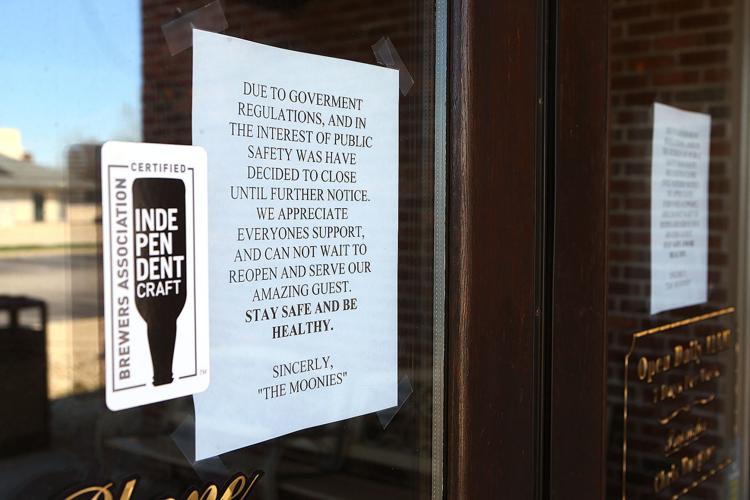 DUE TO GOVERMENT
REGULATIONS, AND IN
THE INTEREST OF PUBLIC
SAFETY WAS HAVE
DECIDED TO CLOSE
UNTIL FURTHER NOTICE.
WE APPRECIATE
EVERYONES SUPPORT,
AND CAN NOT WAIT TO
REOPEN AND SERVE OUR
AMAZING GUEST.
STAY SAFE AND BE
HEALTHY.
SINCERLY,
"THE MOONIES"
CERTIFIED
BREWERS ASSOCIATION
INDE
PEN
DENT
CRAFT
TM
Phone
Open Daily 11AM
7 Days Per Week